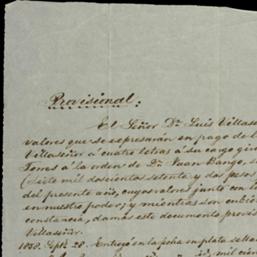 Provisional:
El Señor Dn. Luis Villase
valores que se espresarán en pago de l
Villaseñor á cuatro letras á su cargo gir
Torres á la orden de Dn. Juan Bango, s
(siete mil doscientos setenta y dos pesos
del presente año, cuyos valores junto con l
en nuestro poder; y mientras son cubier
constancia, damos este documento provis
Villaseñor.
Sept. 28. Entregó en la fecha en plata
mil cien